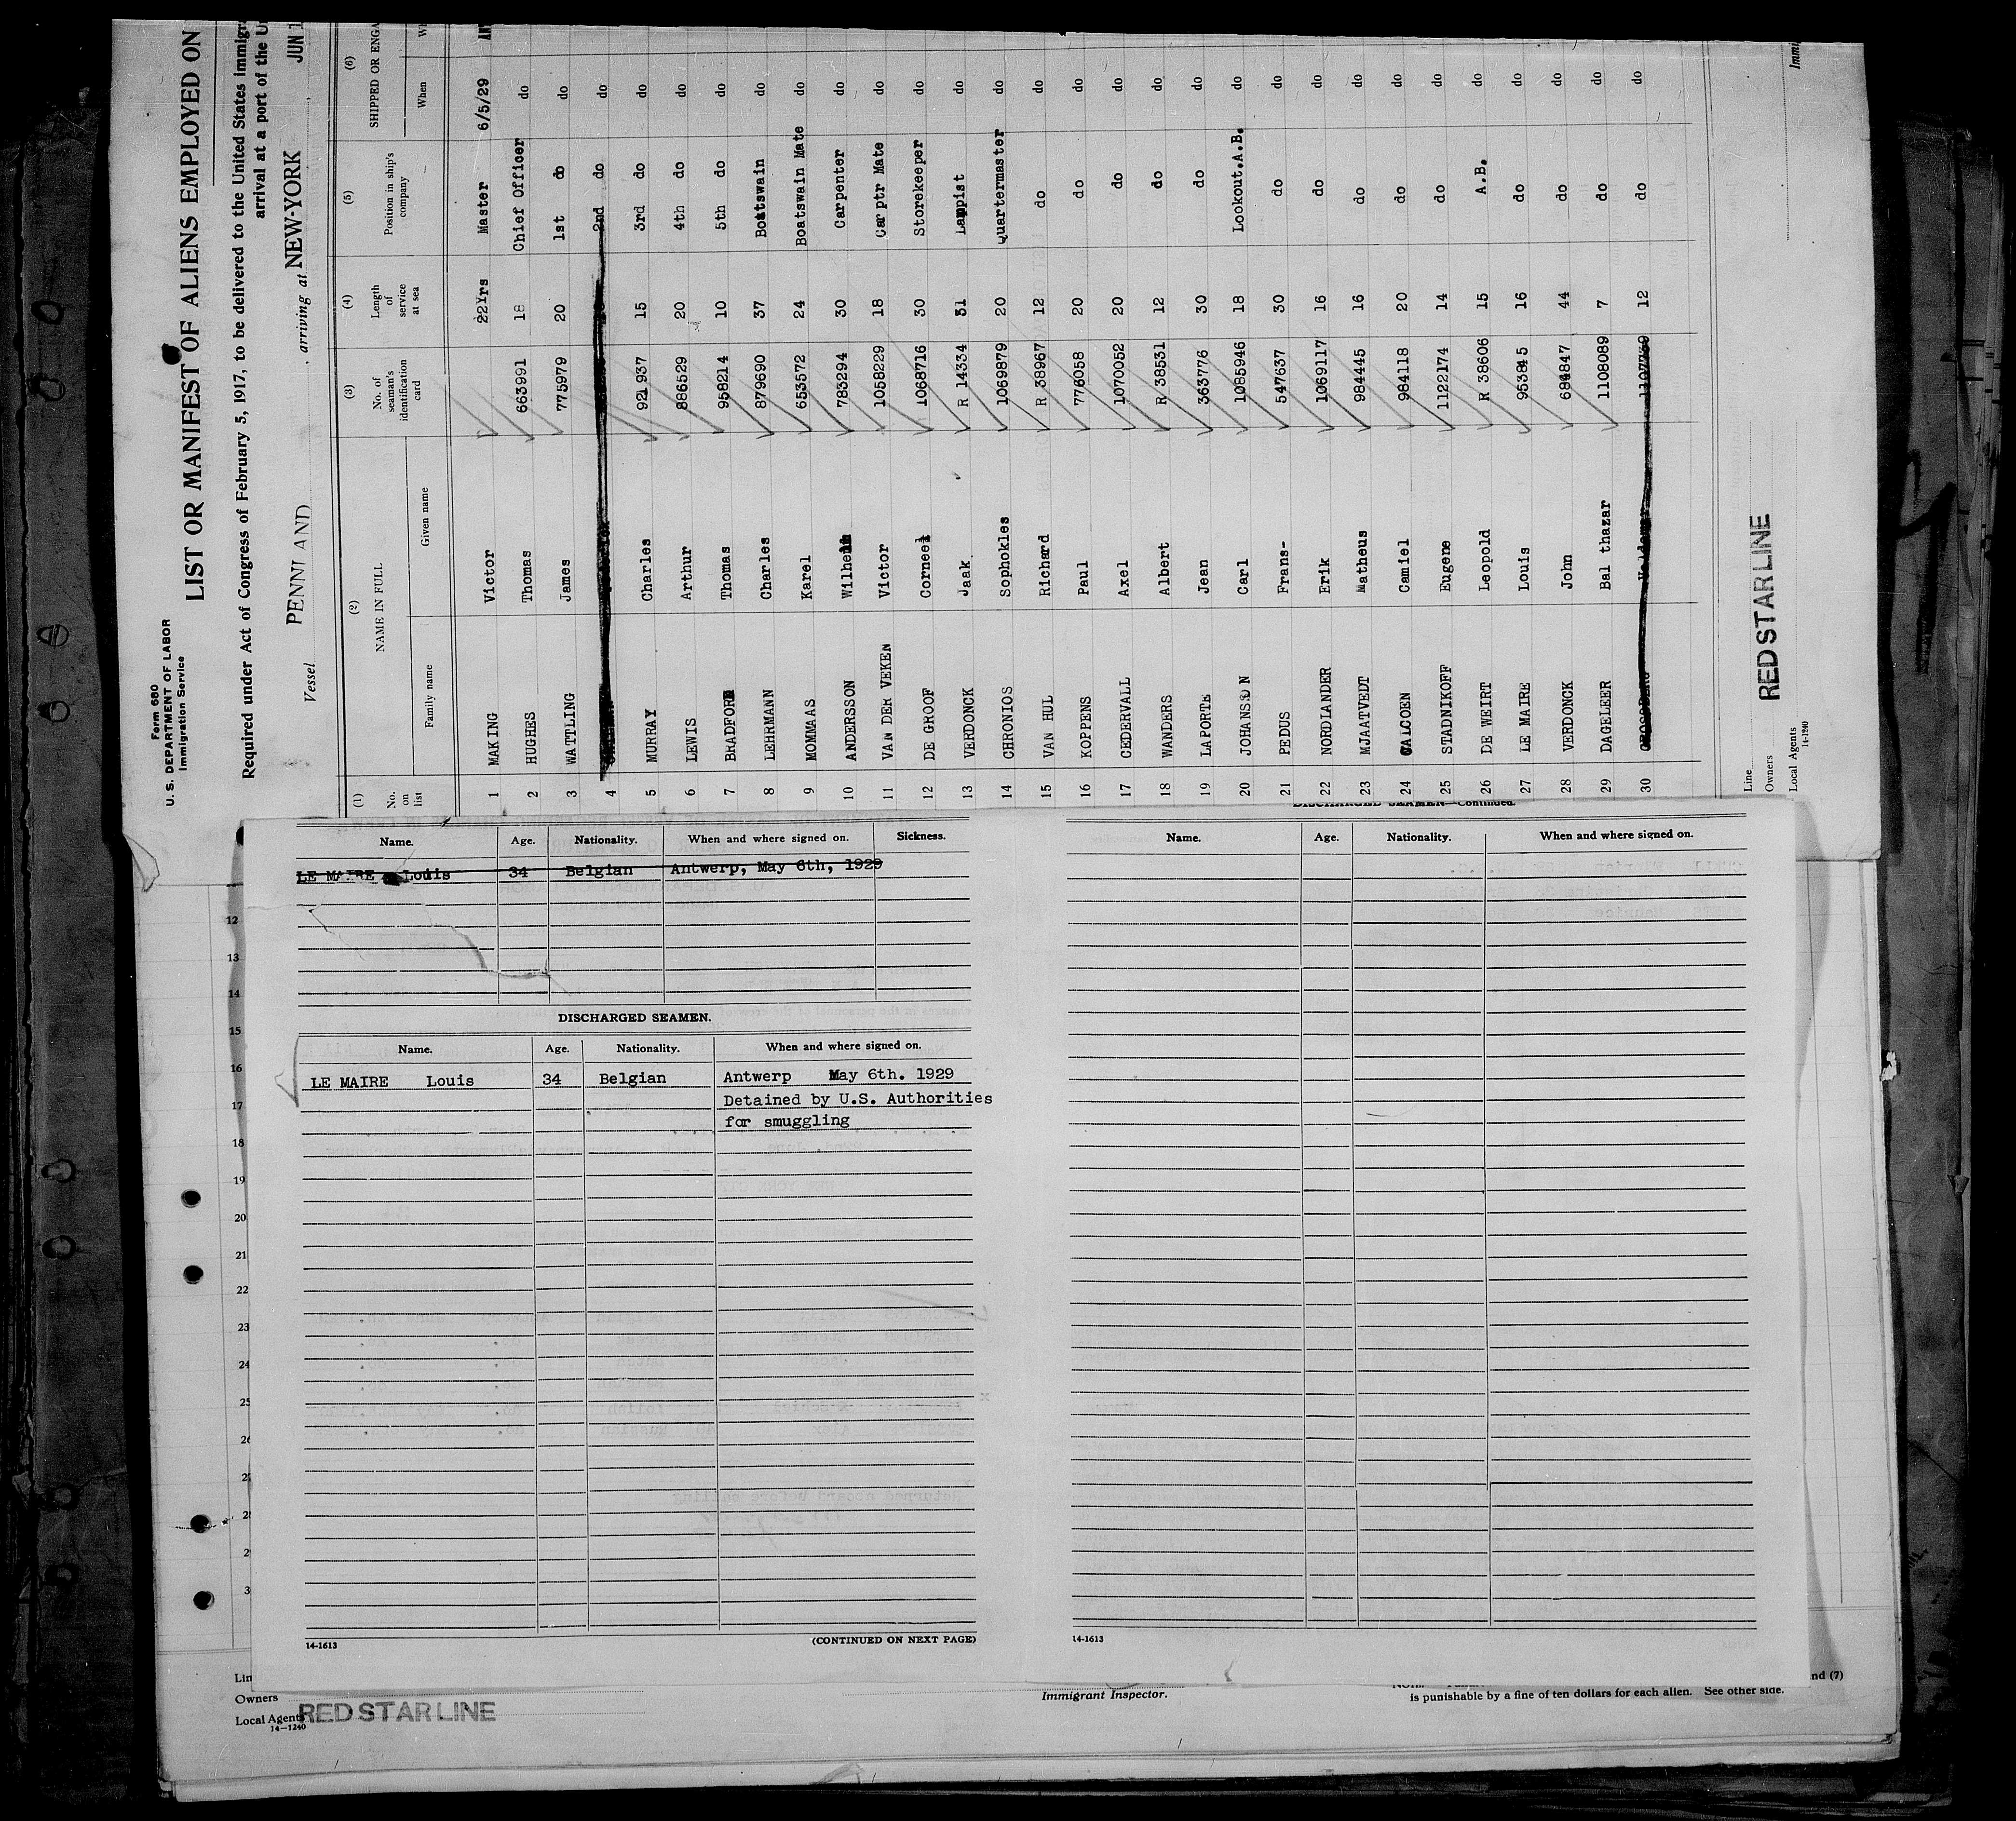 Form 680
U. S. DEPARTMENT OF LABOR
Immigration Service
LIST OR MANIFEST OF ALIENS EMPLOYED ON
Required under Act of Congress of February 5, 1917, to be delivered to the United States immigr
arrival at a port of the U
Vessel PENNLAND , arriving at NEW-YORK , JUN 1
(1) (2) (3) (4) (5) (6)
No. on list NAME IN FULL No. of seaman's identification card Length of service at sea Position in ship's company SHIPPED OR ENGA
Family name Given name When
1 MAKING Victor 22Yrs Master 6/5/29 AN
2 HUGHES Thomas 663991 18 Chief Officer do
3 WATTLING James 775979 20 1st do do
4 2nd do do
5 MURRAY Charles 921937 15 3rd do do
6 LEWIS Arthur 886529 20 4th do do
7 BRADFORD Thomas 958214 10 5th do do
8 LEHRMANN Charles 879690 37 Boatswain do
9 MOMMAAS Karel 653572 24 Boatswain Mate do
10 ANDERSSON Wilhelm 783294 30 Carpenter do
11 VAN DER VEKEN Victor 1058229 18 Carptr Mate do
12 DE GROOF Corneel 1068716 30 Storekeeper do
13 VERDONCK Jaak. R 14334 31 Lampist do
14 CHRONIOS Sophokles 1069879 20 Quartermaster do
15 VAN HUL Richard R 38967 12 do do
16 KOPPENS Paul 776058 20 do do
17 CEDERVALL Axel 1070052 20 do do
18 WANDERS Albert R 38531 12 do do
19 LAPORTE Jean 363776 30 do do
20 JOHANSSON Carl 1085946 18 Lookout.A.B. do
21 PEDUS Frans- 547637 30 do do
22 NORDLANDER Erik 1069117 16 do do
23 MJAATVEDT Matheus 984445 16 do do
24 CALCOEN Camiel 984118 20 do do
25 STADNIKOFF Eugene 1122174 14 do do
26 DE WEIRT Leopold R 38606 15 A.B. do
27 LE MAIRE Louis 953845 16 do do
28 VERDONCK John 684847 44 do do
29 DAGELEER Balthazar 1108089 7 do do
30 1107739 12 do do
Line
Owners RED STAR LINE
Local Agents
14-1240
Immi
Name. Age. Nationality. When and where signed on. Sickness.
LE MAIRE Louis 34 Belgian Antwerp, May 6th, 1929
DISCHARGED SEAMEN.
Name. Age. Nationality. When and where signed on.
LE MAIRE Louis 34 Belgian Antwerp May 6th. 1929
Detained by U.S. Authorities
for smuggling
14-1613 (CONTINUED ON NEXT PAGE)
DISCHARGED SEAMEN—Continued.
Name. Age. Nationality. When and where signed on.
14-1613
12
13
14
15
16
17
18
19
20
21
22
23
24
25
Lin
Owners
Local Agents RED STAR LINE
14-1240
Immigrant Inspector.
nd (7)
is punishable by a fine of ten dollars for each alien. See other side.